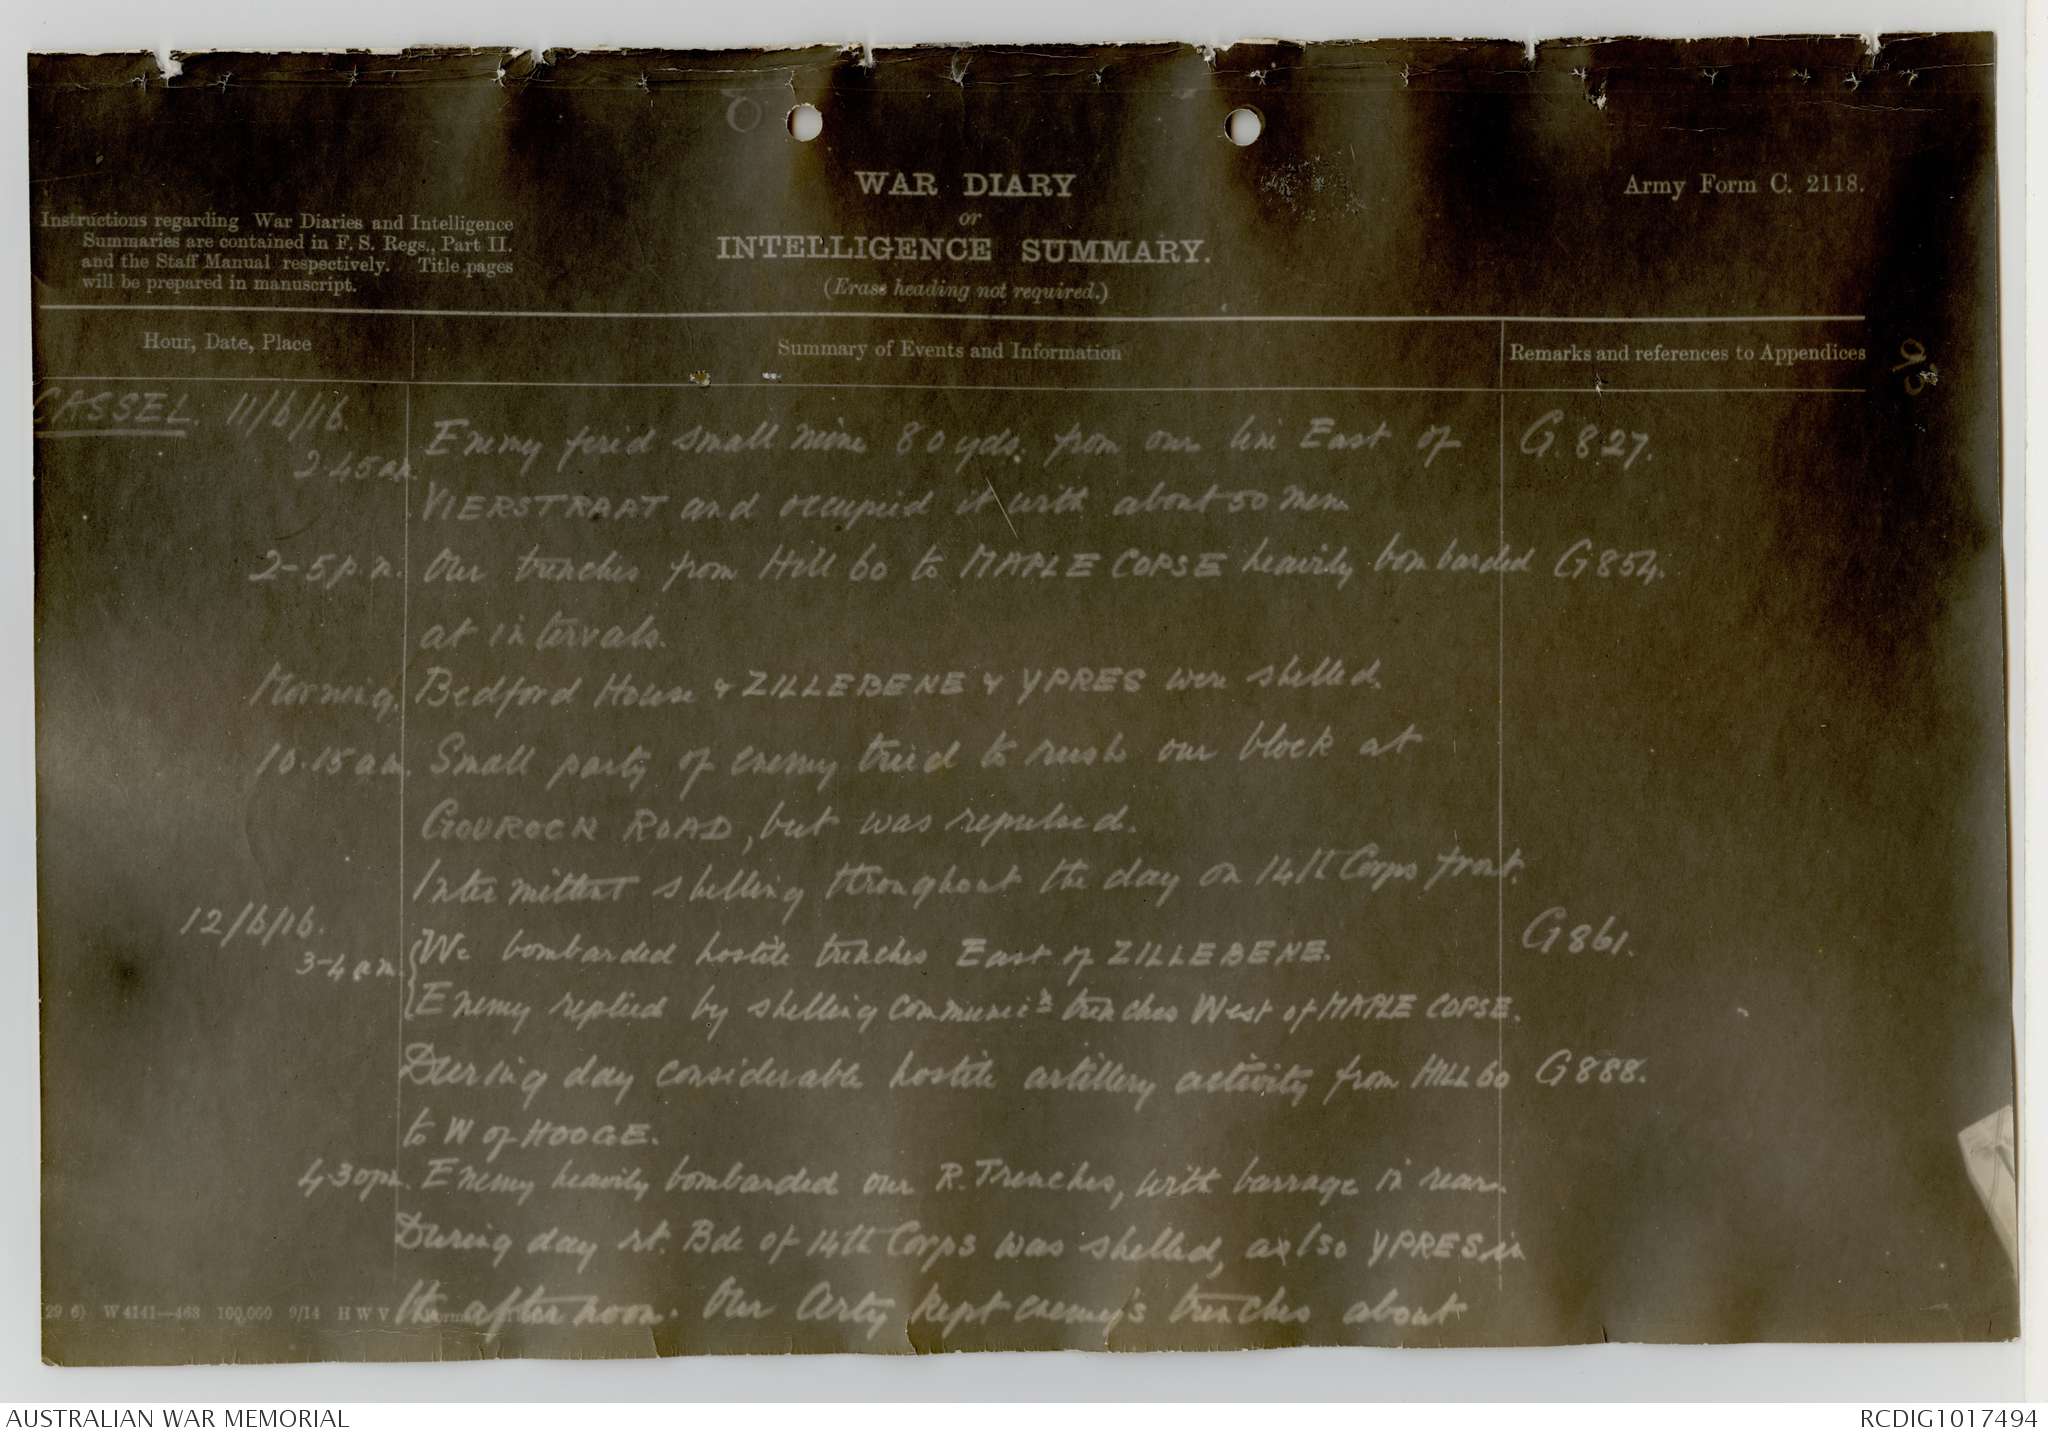 8
WAR DIARY
or
INTELLIGENCE SUMMARY.
(Erase heading not required.)
Army Form C. 2118.
Instructions regarding War Diaries and Intelligence
Summaries are contained in F. S. Regs., Part II.
and the Staff Manual respectively. Title pages
will be prepared in manuscript.
Hour, Date, Place
Summary of Events and Information
Remarks and references to Appendices
CASSEL. 11/6/16.
2.45am. Enemy fired small mine 80 yds. from our line East of G.827.
VIERSTRAAT and occupied it with about 50 men
2-5p.m. Our trenches from Hill 60 to MAPLE COPSE heavily bombarded G854.
at intervals.
Morning. Bedford House & ZILLEBEKE & YPRES were shelled.
10.15am. Small party of enemy tried to rush our block at
GOUROCK ROAD, but was repulsed.
Intermittent shelling throughout the day on 14th Corps front.
12/6/16.
3-4am. We bombarded hostile trenches East of ZILLEBEKE. G861.
Enemy replied by shelling Communicn trenches West of MAPLE COPSE.
During day considerable hostile artillery activity from HILL 60 G888.
to W of HOOGE.
4.30pm. Enemy heavily bombarded our R. Trenches, with barrage in rear.
During day rt. Bde of 14th Corps was shelled, also YPRES in
the afternoon. Our Arty kept enemy's trenches about
29 6) W 4141—463 100,000 9/14 H W V
AUSTRALIAN WAR MEMORIAL
RCDIG1017494